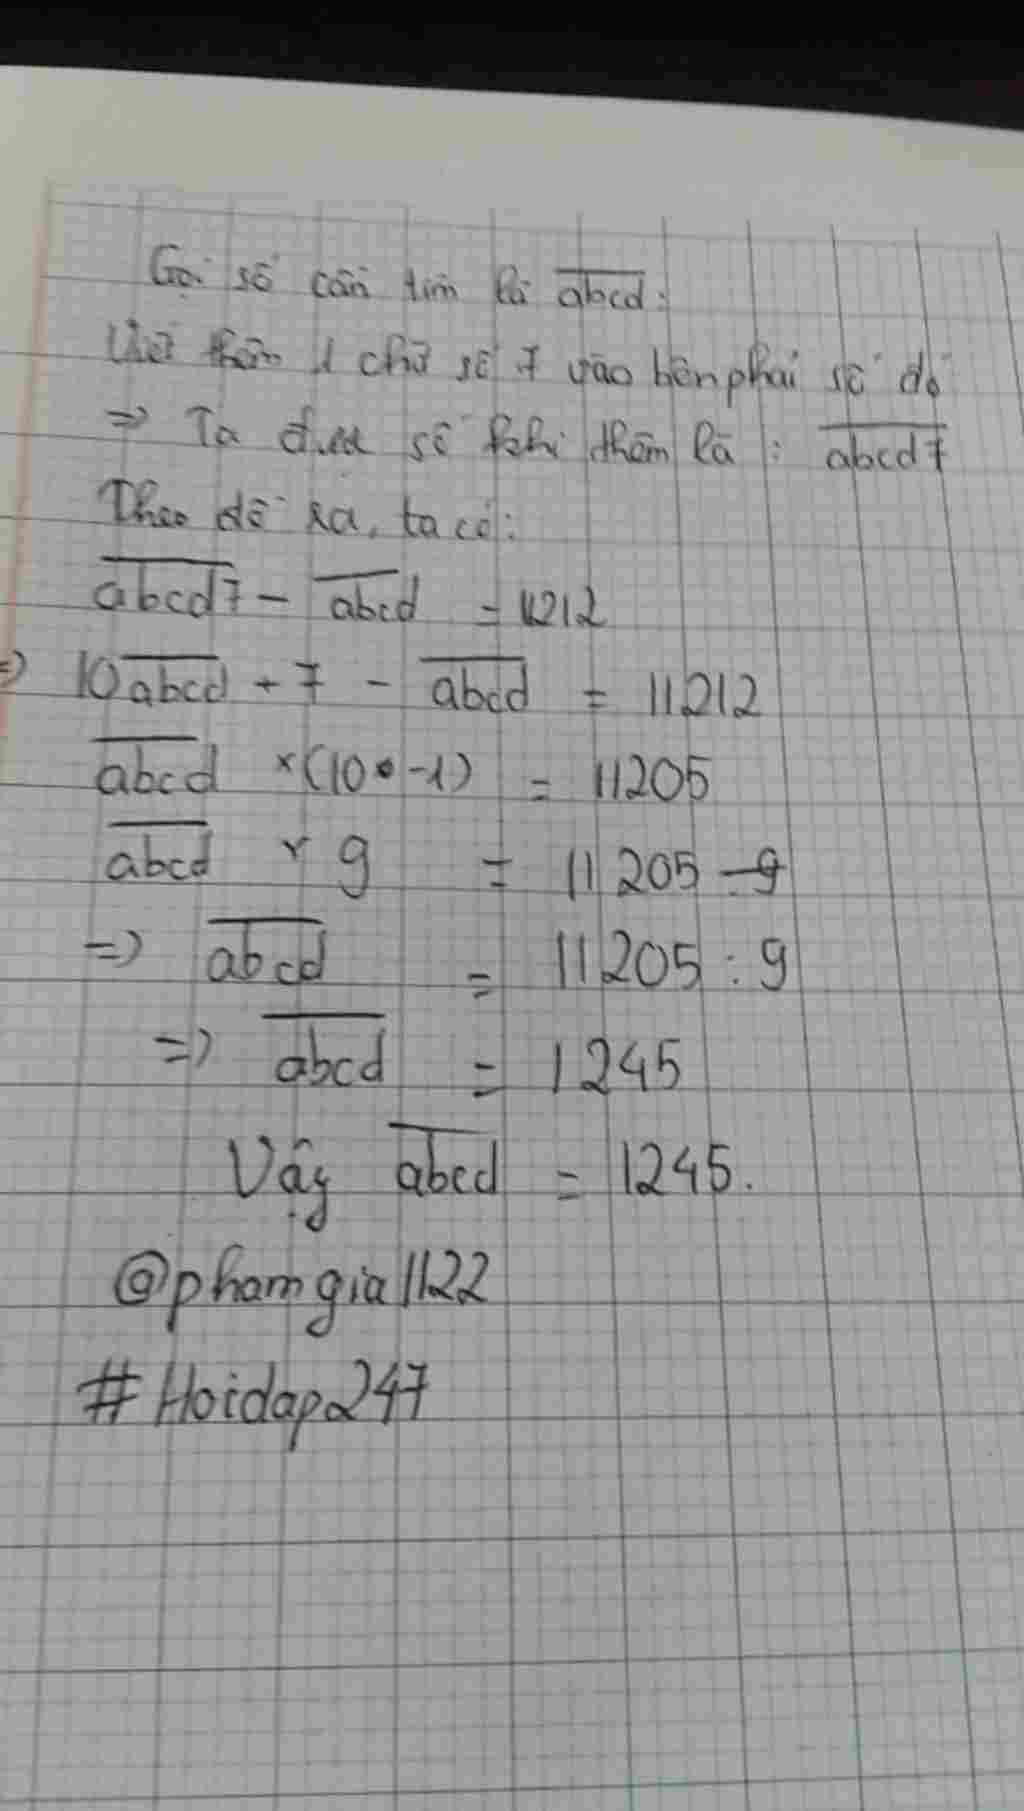 Gọi số cần tìm là abcd:
Viết thêm 1 chữ số 7 vào bên phải số đó
=> Ta được số khi thêm là : abcd7
Theo đề ra, ta có:
abcd7 - abcd = 11212
=> 10abcd + 7 - abcd = 11212
abcd × (10 -1) = 11205
abcd × 9 = 11205
=> abcd = 11205 : 9
=> abcd = 1245
Vậy abcd = 1245.
@phamgia1122
#Hoidap247